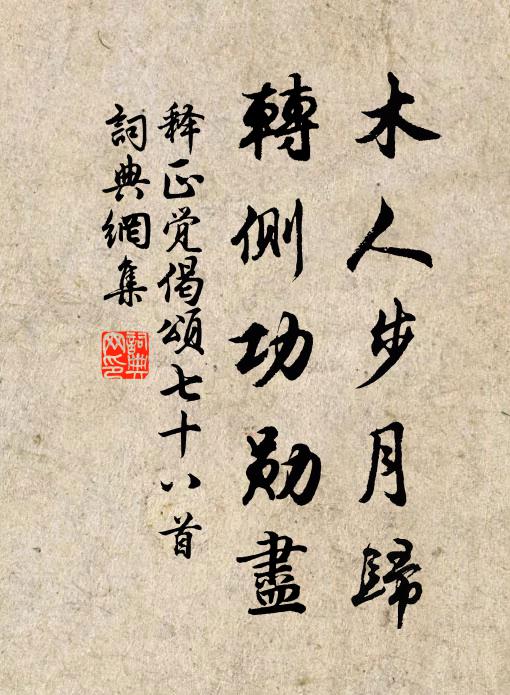 木人步月歸
轉側功勛盡
释正覚偈頌七十八首
詞典網集
詞典
网印